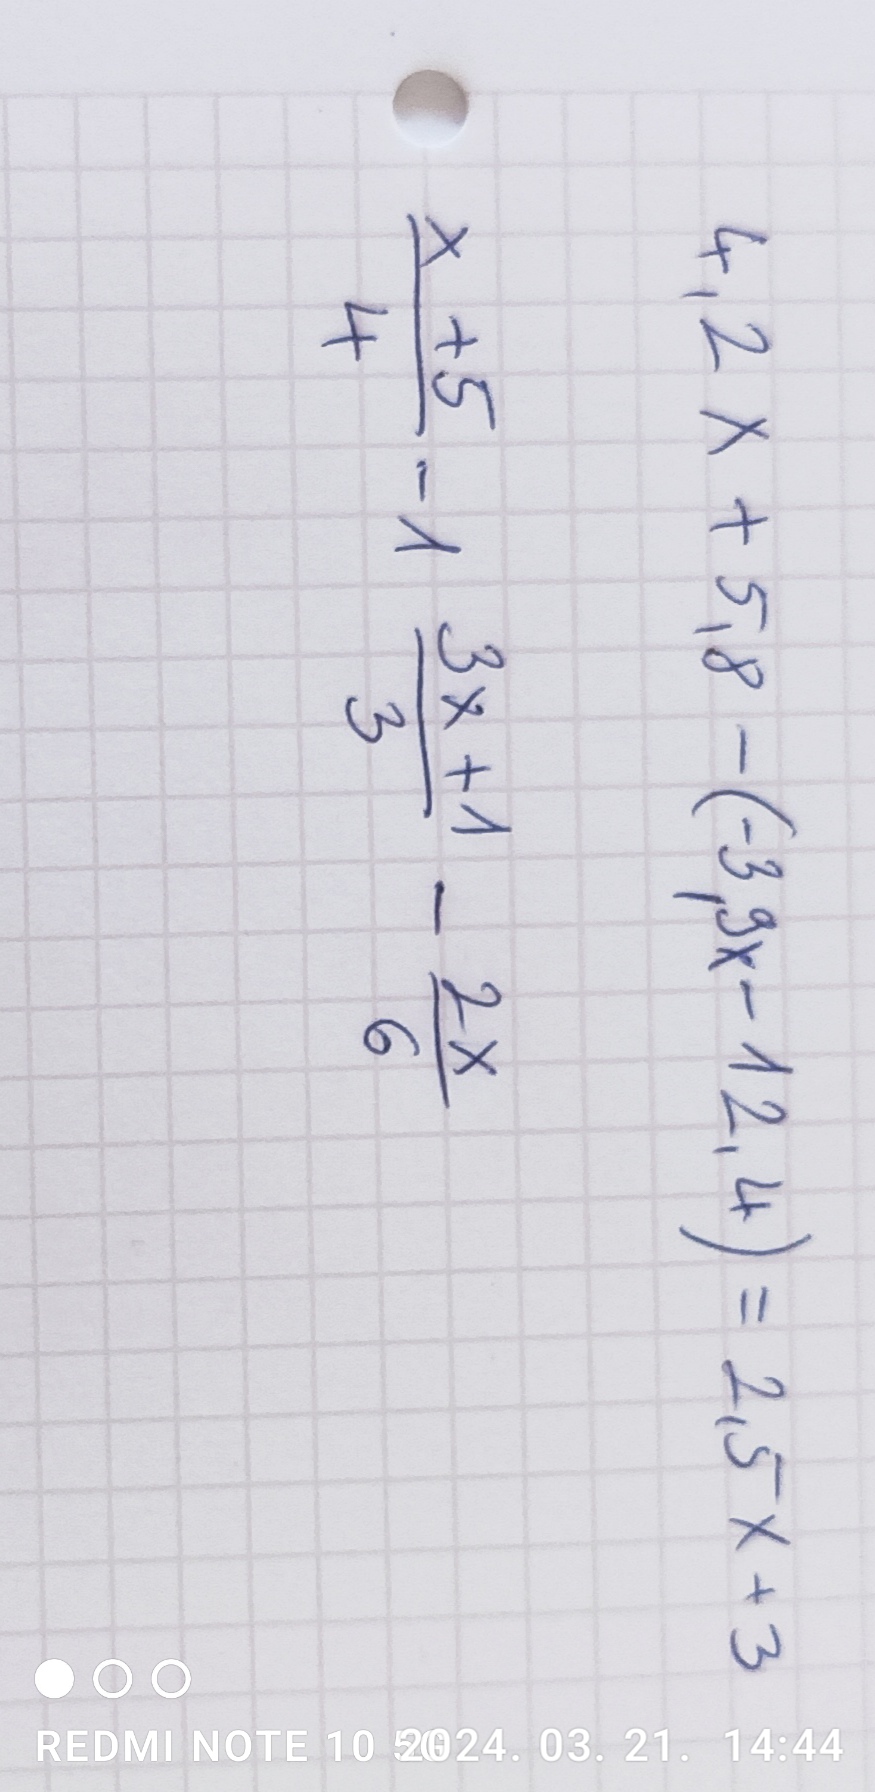 4,2x + 5,8 - (-3,9x - 12,4) = 2,5x + 3
x+5/4 - 1 3x+1/3 - 2x/6
REDMI NOTE 10 5G 2024. 03. 21. 14:44